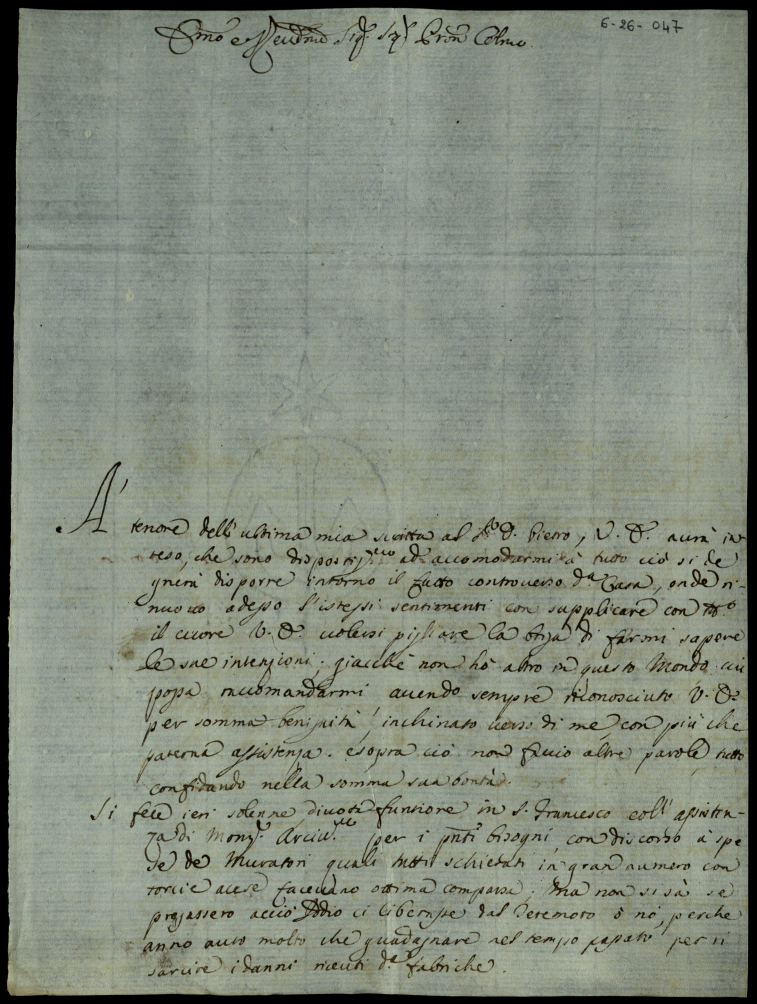 6-26-047
Emo e Revdmo Sigr Sigr Pron Colmo
A'
tenore dell'ultima mia scritta al Sr D. Pietro, V. E. aurà in=
teso, che sono dispostissmo ad accomodarmi à tutto ciò si de
gnerà disporre intorno il fatto controverso da Casa, onde ri-
nuovo adesso l'istessi sentimenti con supplicare con tto
il cuore V. E. volersi pigliare la briga di farmi sapere
le sue intenzioni, giacchè non hò altro in questo Mondo cui
possa raccomandarmi avendo sempre riconosciuto V. E.
per somma benignità inchinato verso di me, con più che
paterna assistenza. e sopra ciò non faccio altre parole, tutto
confidando nella somma sua bontà.
Si fece ieri solenne, divota funzione in S. Francesco coll' assisten-
za di Monsr Arcivo per i pnti bisogni, con discorso à spe
se de Muratori quali tutti schierati in gran numero con
torcie accese facevano ottima comparsa; ma non si sà se
pregassero acciò Iddio ci liberasse dal Teremoto ò nò, perche
anno auto molto che guadagnare nel tempo passato per ri
sarcire i danni riceuti da fabriche.